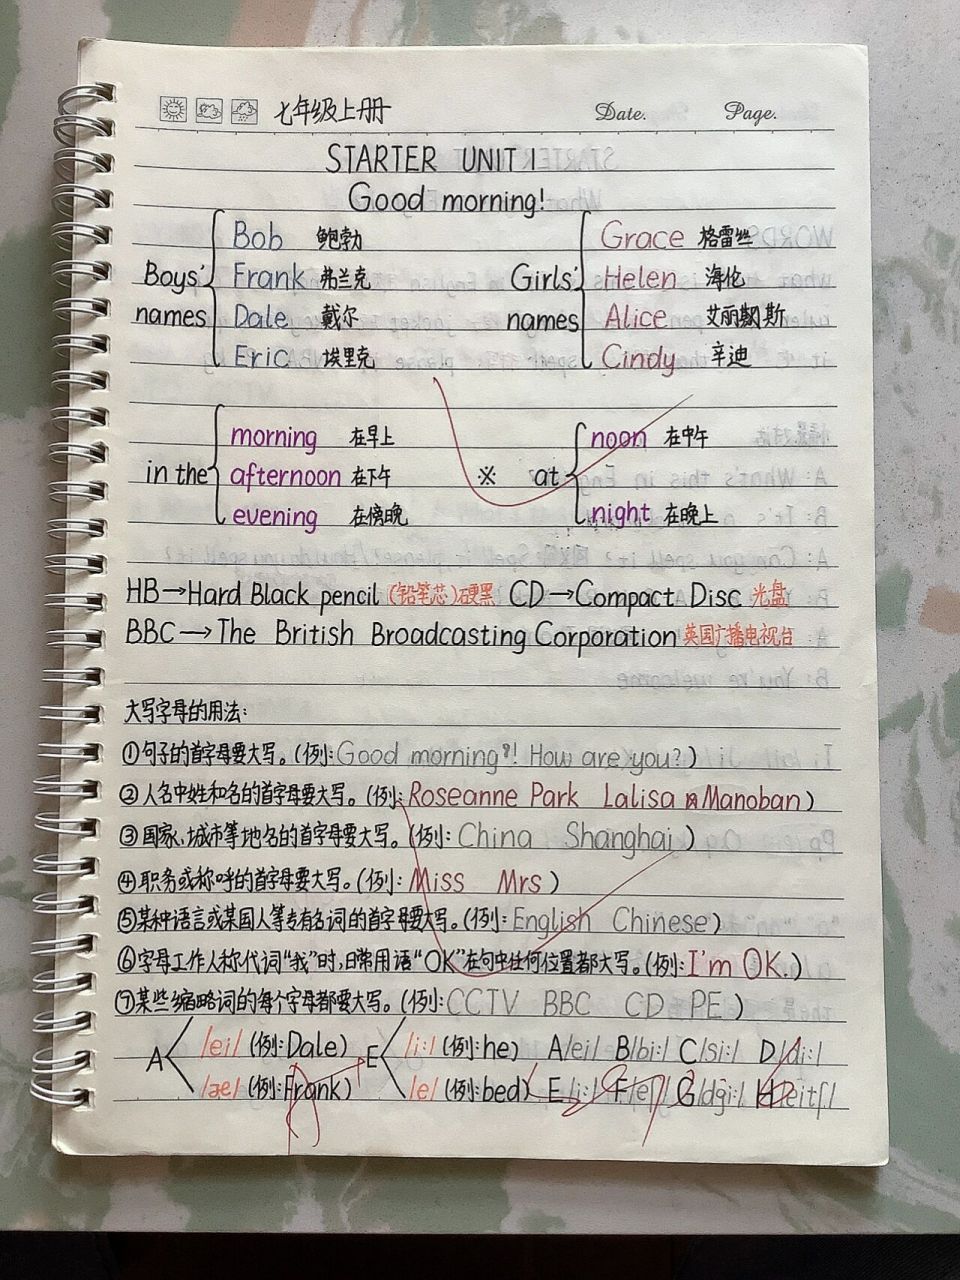 七年级上册 Date. Page.
STARTER UNIT 1
Good morning!
Bob 鲍勃 Grace 格蕾丝
Boys' Frank 弗兰克 Girls' Helen 海伦
names Dale 戴尔 names Alice 艾丽斯
Eric 埃里克 Cindy 辛迪
morning 在早上 noon 在中午
in the afternoon 在下午 ※ at
evening 在傍晚 night 在晚上
HB→Hard Black pencil (铅笔芯)硬黑 CD→Compact Disc 光盘
BBC→The British Broadcasting Corporation 英国广播电视台
大写字母的用法:
①句子的首字母要大写。(例:Good morning! How are you?)
②人名中姓和名的首字母要大写。(例:Roseanne Park Lalisa Manoban)
③国家、城市等地名的首字母要大写。(例:China Shanghai)
④职务或称呼的首字母要大写。(例:Miss Mrs)
⑤某种语言或某国人等专有名词的首字母要大写。(例:English Chinese)
⑥字母I作人称代词“我”时,日常用语“OK”在句中任何位置都大写。(例:I'm OK.)
⑦某些缩略词的每个字母都要大写。(例:CCTV BBC CD PE)
A /ei/ (例:Dale) E /i:/ (例:he) A/ei/ B/bi:/ C/si:/ D/di:/
/æ/ (例:Frank) /e/ (例:bed) E/i:/ F/ef/ G/dʒi:/ H/eitʃ/